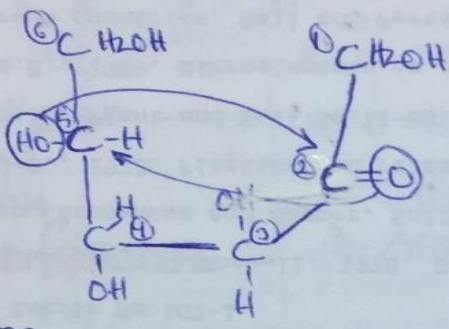 ⑥CH2OH ①CH2OH
HO-⑤C-H ②C=O
H OH
C④ C③
OH H